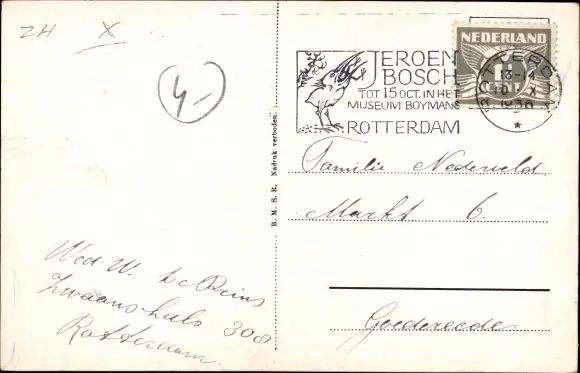 ZH X
4-
JEROEN
BOSCH
TOT 15 OCT. IN HET
MUSEUM BOYMANS
ROTTERDAM
NEDERLAND
ROTTERDAM
13-14
X
1936
B. M. S. R. Nadruk verboden.
Familie Nederveld
Markt 6.
Goedereede
Wed W. de Bruins
Zwaanshals 308
Rotterdam.